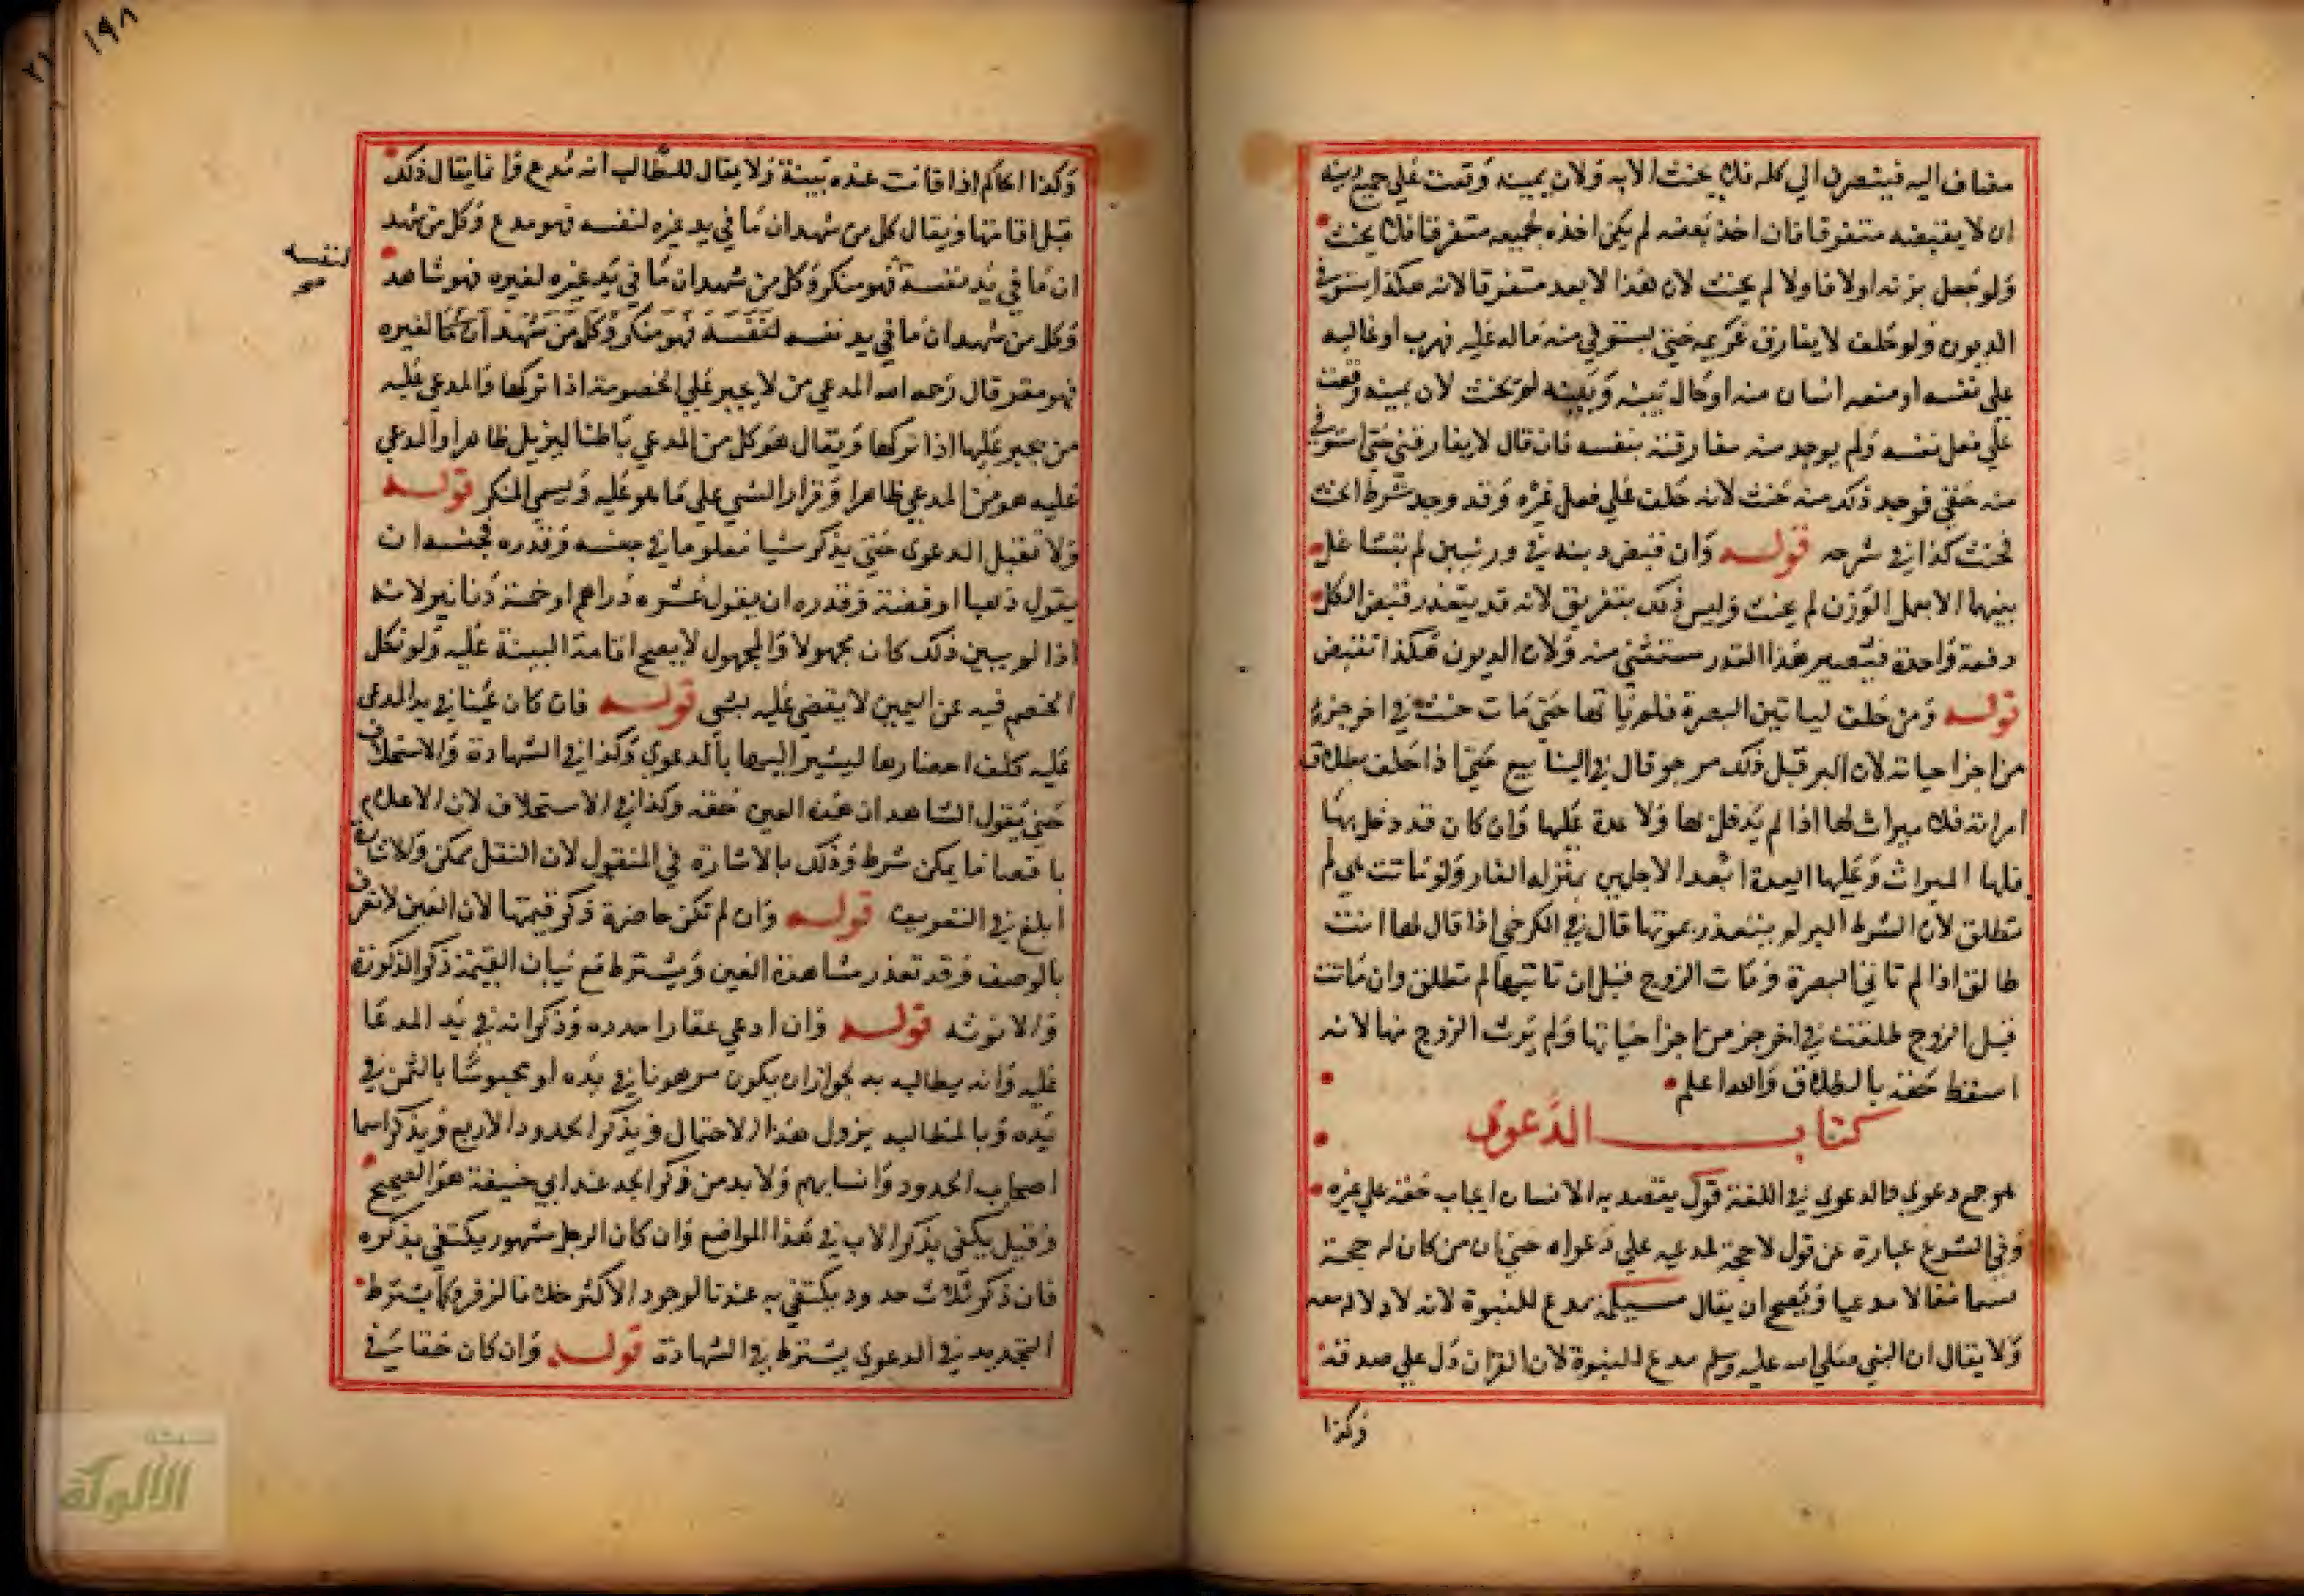 مضاف اليه فينصرف الي كله فلا يحنث الا به ولان يمينه وقعت علي جميع دينه
ان لا يقبضه متفرقا فان اخذ بعضه لم يكن اخذه لجميعه متفرقا فلا يحنث
ولو جعل يزنه اولا فاولا لم يحنث لان هذا لا يعد متفرقا لانه هكذا تستوفي
الديون ولو حلف لا يفارق غريمه حتي يستوفي منه ماله عليه فهرب او غالبه
علي نفسه او منعه انسان منه او حال بينه وبينه لم يحنث لان يمينه وقعت
علي فعل نفسه ولم يوجد منه مفارقته بنفسه فان قال لا يفارقني حتي استوفي
منه حقي فوجد ذلك منه حنث لانه حلف علي فعل غيره وقد وجد شرط الحنث
فحنث كذا في شرحه قوله وان قبض دينه في وزنين لم يتشاغل
بينهما الا بعمل الوزن لم يحنث وليس ذلك بتفريق لانه قد يتعذر قبض الكل
دفعة واحدة فيصير هذا القدر مستثني منه ولان الديون هكذا تقبض
قوله ومن حلف لياتين البصرة فلم ياتها حتي مات حنث في اخر جزء
من اجزا حياته لان البر قبل ذلك مرجو قال في الينابيع حتي اذا حلف بطلاق
امراته فلا ميراث لها اذا لم يدخل بها ولا عدة عليها وان كان قد دخل بها
فلها الميراث وعليها العدة ابعد الاجلين بمنزلة الفار ولو ماتت هي لم
تطلق لان الشرط البر لم يتعذر بموتها قال في الكرخي اذا قال لها انت
طالق اذا لم تاتي البصرة ومات الزوج قبل ان تاتيها لم تطلق وان ماتت
قبل الزوج طلقت في اخر جز من اجزا حياتها ولم يرث الزوج منها لانه
اسقط حقه بالطلاق والله اعلم
كتاب الدعوى
هو جمع دعوي والدعوي في اللغة قول يقصد به الانسان ايجاب حقه علي غيره
وفي الشرع عبارة عن قول لا حجة لمدعيه علي دعواه حتي ان من كان له حجة
سما محقا لا مدعيا ويصح ان يقال مسيلمة مدع للنبوة لانه لا دلالة معه
ولا يقال ان النبي صلي الله عليه وسلم مدع للنبوة لان القران دل علي صدقه
وكذا
١٩٨
٢١
وكذا الحاكم اذا قامت عنده بينة ولا يقال للطالب انه مدع وانما يقال ذلك
قبل اقامتها ويقال كل من شهد ان ما في يد غيره لنفسه فهو مدع وكل من شهد
ان ما في يد نفسه فهو منكر وكل من شهد ان ما في يد غيره لغيره فهو شاهد
لنفسه
صح
وكل من شهد ان ما في يد نفسه لنفسه فهو منكر وكل من شهد ان ما لغيره
فهو مقر قال رحمه الله المدعي من لا يجبر علي الخصومة اذا تركها والمدعي عليه
من يجبر عليها اذا تركها ويقال هو كل من المدعي باطنا ليزيل ظاهرا والمدعي
عليه هو من المدعي ظاهرا وقرار الشي علي ما هو عليه ويسمي المنكر قوله
ولا تقبل الدعوى حتي يذكر شيا معلوما في جنسه وقدره فجنسه ان
يقول ذهبا او فضة وقدره ان يقول عشرة دراهم او خمسة دنانير لانه
اذا لم يبين ذلك كان مجهولا والمجهول لا يصح اقامة البينة عليه ولو نكل
الخصم فيه عن اليمين لا يقضي عليه بشي قوله فان كان عينا في يد المدعي
عليه كلف احضارها ليشير اليها بالدعوي وكذا في الشهادة والاستحلاف
حتي يقول الشاهد ان هذه العين حقه وكذا في الاستحلاف لان الاعلام
باقصا ما يمكن شرط وذلك بالاشارة في المنقول لان النقل ممكن والاشارة
ابلغ في التعريف قوله وان لم تكن حاضرة ذكر قيمتها لان العين لا تعرف
بالوصف وقد تعذر مشاهدة العين ويشترط مع بيان القيمة ذكر الذكورة
والانوثه قوله وان ادعي عقارا حدده وذكر انه في يد المدعا
عليه وانه يطالبه به لجواز ان يكون مرهونا في يده او محبوسا بالثمن في
يده وبالمطالبه يزول هذا الاحتمال ويذكر الحدود الاربع ويذكر اسما
اصحاب الحدود وانسابهم ولا بد من ذكر الجد عند ابي حنيفة هو الصحيح
وقيل يكفي بذكر الاب في هذا المواضع وان كان الرجل مشهور يكتفي بذكره
فان ذكر ثلاث حدود يكتفي به عندنا لوجود الاكثر خلافا لزفر وكما يشترط
التحديد في الدعوي يشترط في الشهادة قوله وان كان حقا في
شبكة
الألوكة